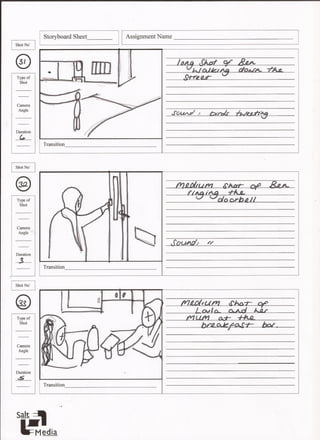 Storyboard Sheet
Assignment Name
Shot No'
31
Type of
Shot
Camera
Angle
Duration
6
Transition
long Shot of Ben
walking down the
Street
Sound: birds tweeting
Shot No'
32
Type of
Shot
Camera
Angle
Duration
3
Transition
medium shot of Ben
ringing the
doorbell
Sound: "
Shot No'
33
Type of
Shot
Camera
Angle
Duration
5
Transition
medium shot of
Layla and her
mum at the
breakfast bar.
Salt
Media